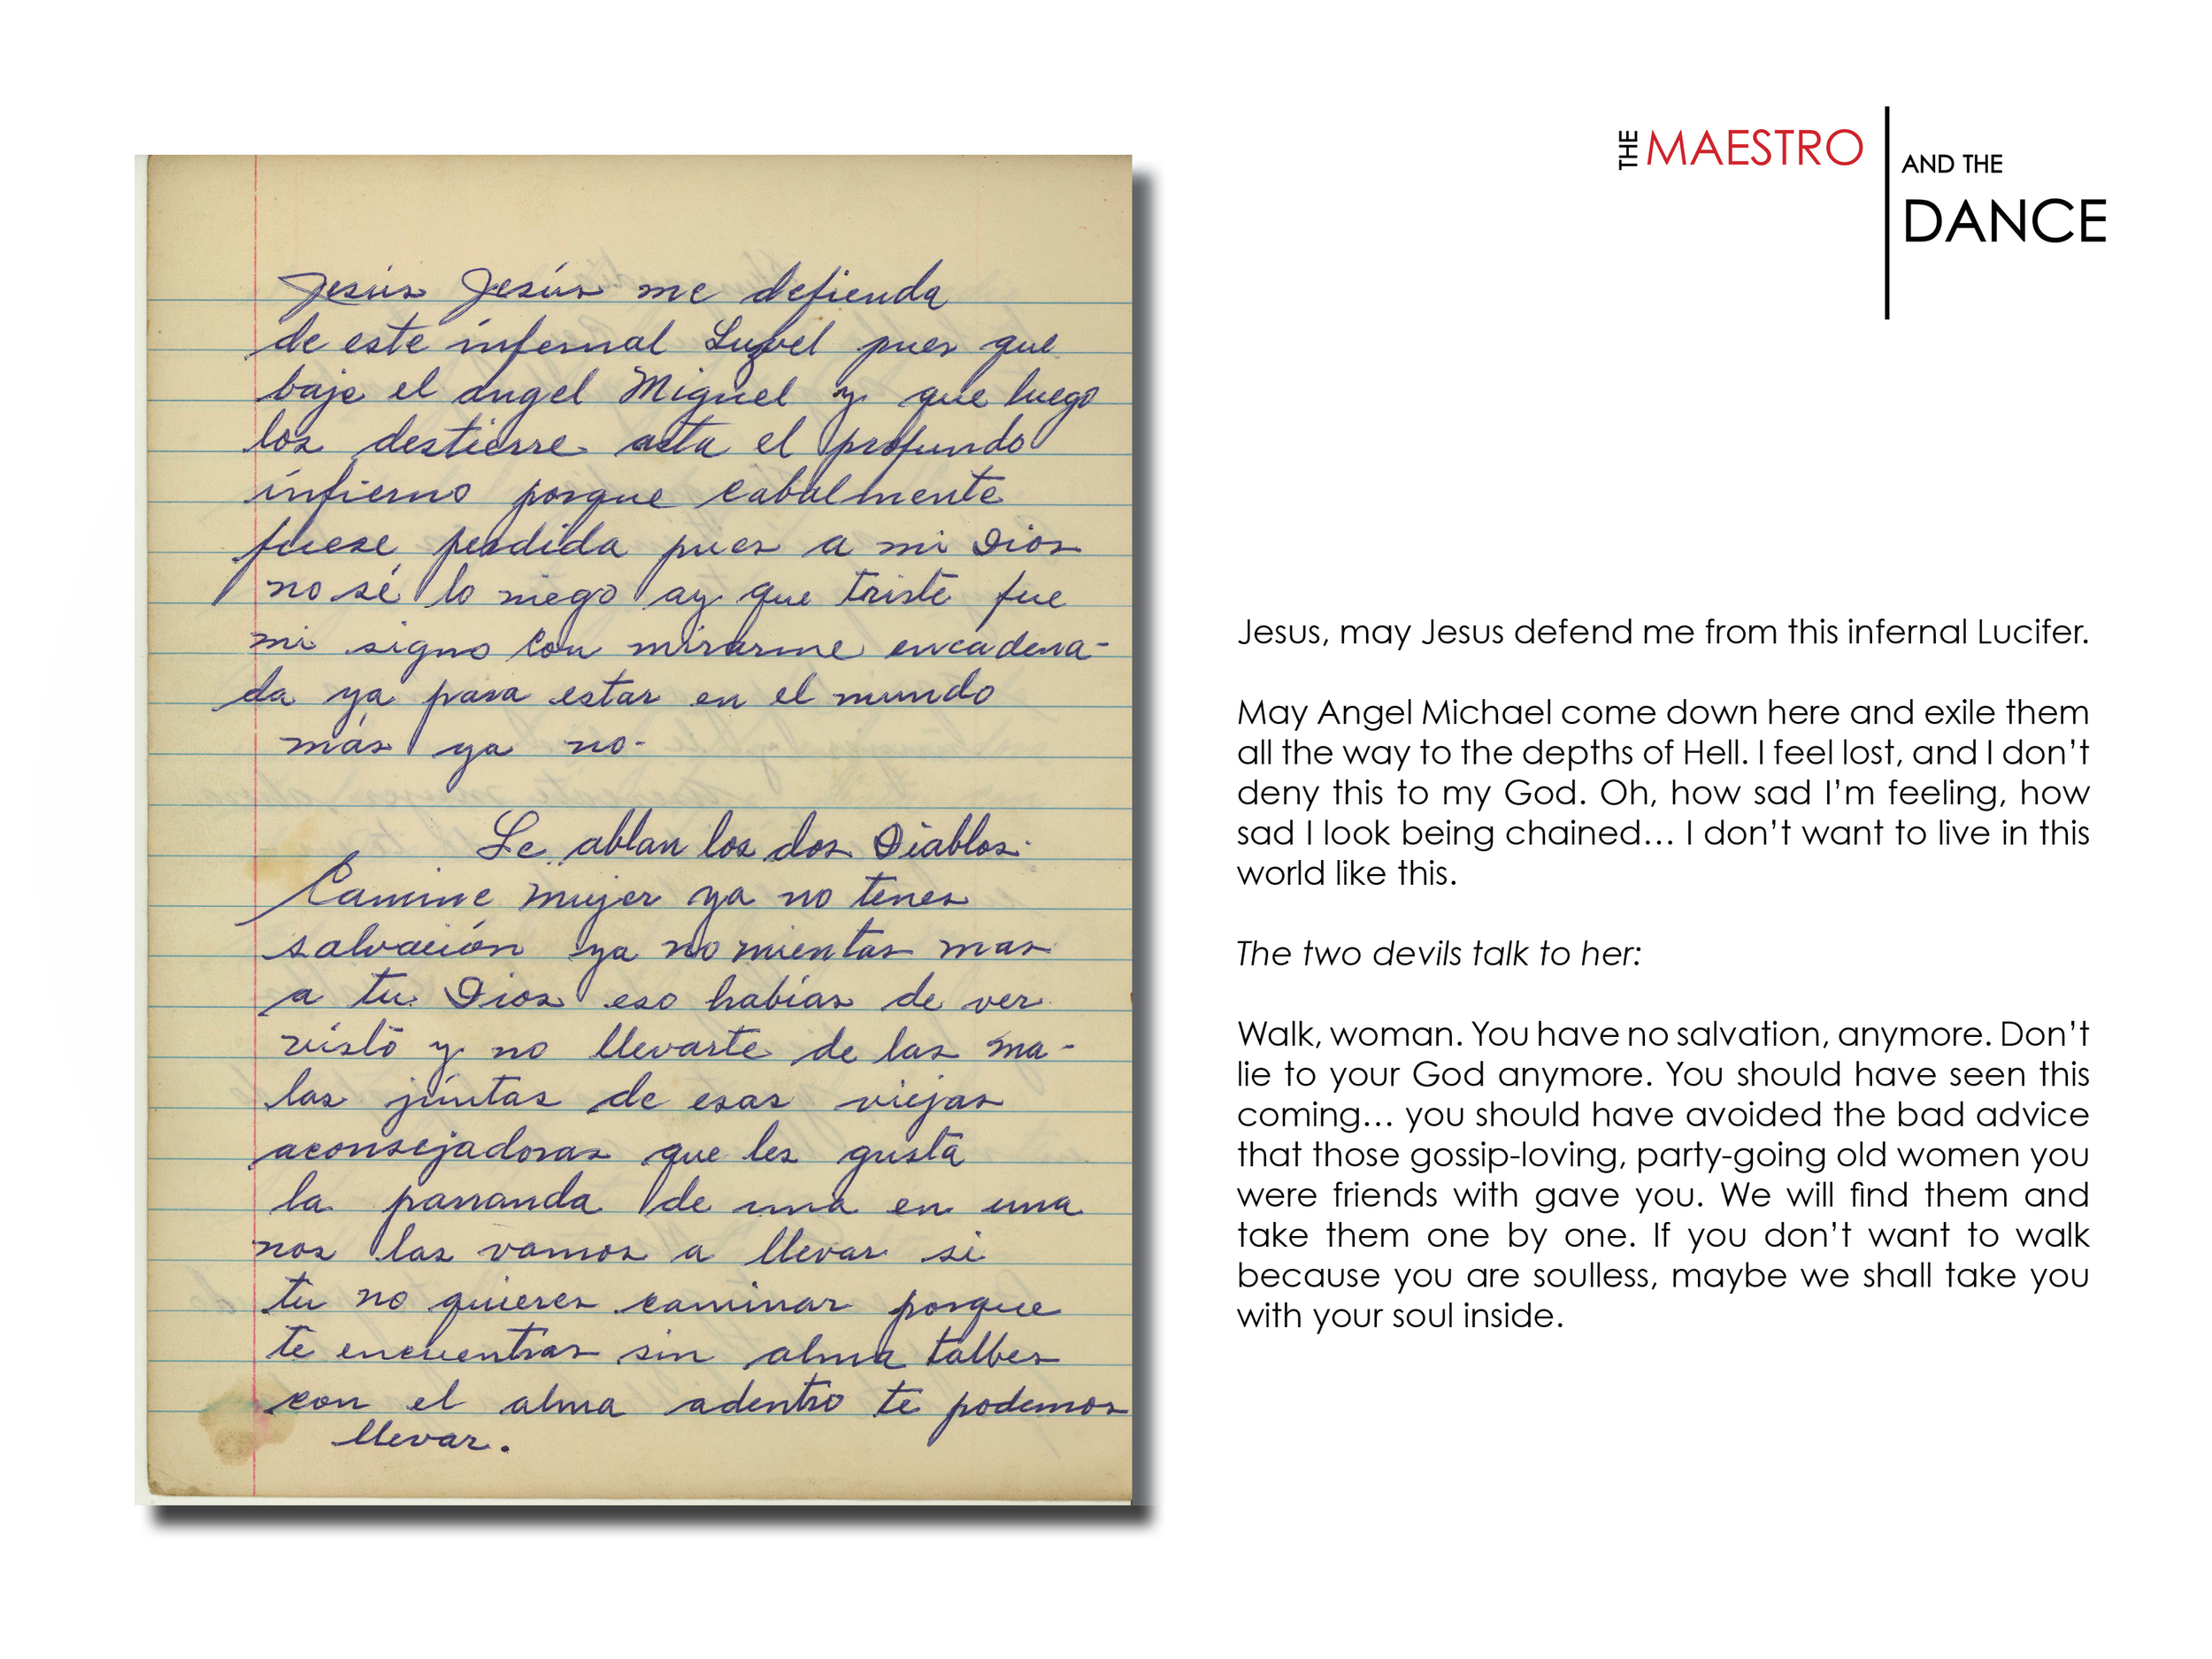 THE MAESTRO AND THE
DANCE
Jesús Jesús me defienda
de este infernal Luzvel pues que
baje el angel Miguel y que luego
los destierre asta el profundo
infierno porque cabalmente
fuese perdida pues a mi Dios
no sé lo niego ay que triste fue
mi signo con mirarme encadena-
da ya para estar en el mundo
más ya no-
Le ablan los dos Diablos.
Camine mujer ya no tenes
salvación ya no mientas mas
a tu Dios eso habías de ver
visto y no llevarte de las ma-
las juntas de esas viejas
aconsejadoras que les gusta
la parranda de una en una
nos las vamos a llevar si
tu no quieres caminar porque
te encuentras sin alma talbes
con el alma adentro te podemos
llevar.
Jesus, may Jesus defend me from this infernal Lucifer.
May Angel Michael come down here and exile them
all the way to the depths of Hell. I feel lost, and I don't
deny this to my God. Oh, how sad I'm feeling, how
sad I look being chained... I don't want to live in this
world like this.
The two devils talk to her:
Walk, woman. You have no salvation, anymore. Don't
lie to your God anymore. You should have seen this
coming... you should have avoided the bad advice
that those gossip-loving, party-going old women you
were friends with gave you. We will find them and
take them one by one. If you don't want to walk
because you are soulless, maybe we shall take you
with your soul inside.